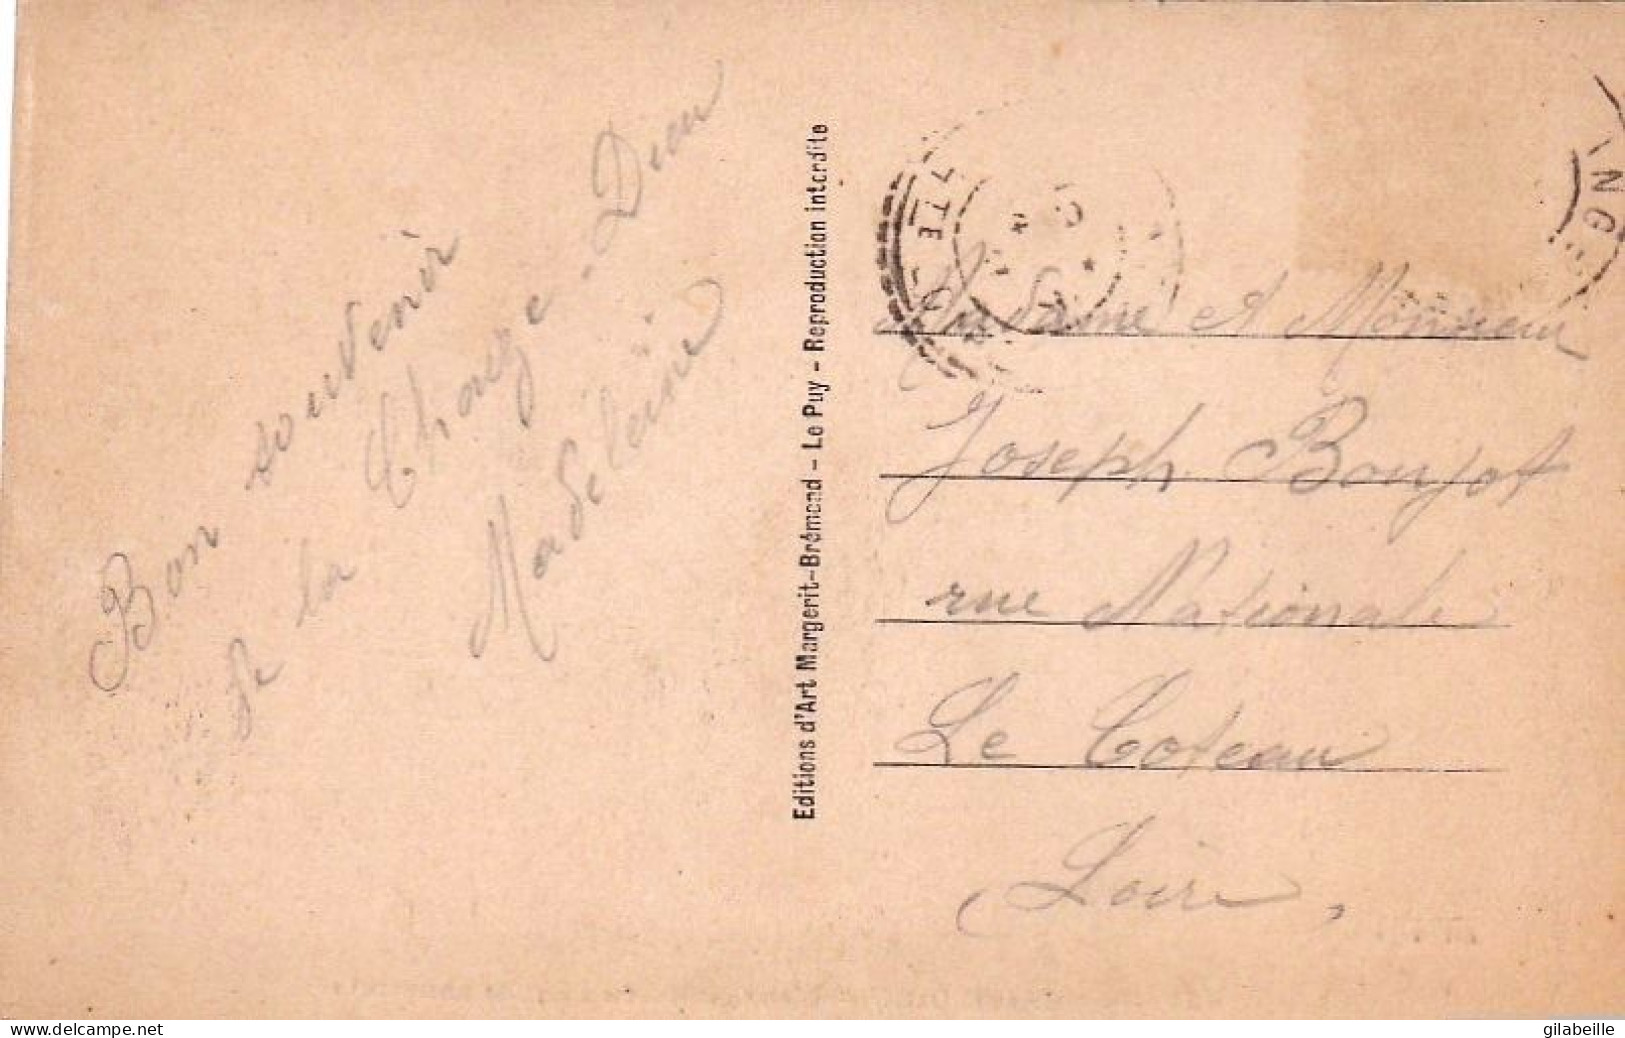 Bon souvenir
de la Chaize-Dieu
Madeleine
Editions d'Art Margerit-Brémond - Le Puy - Reproduction interdite
Madame et Monsieur
Joseph Boujot
rue Nationale
Le Coteau
Loire,
delcampe.net
gilabeille